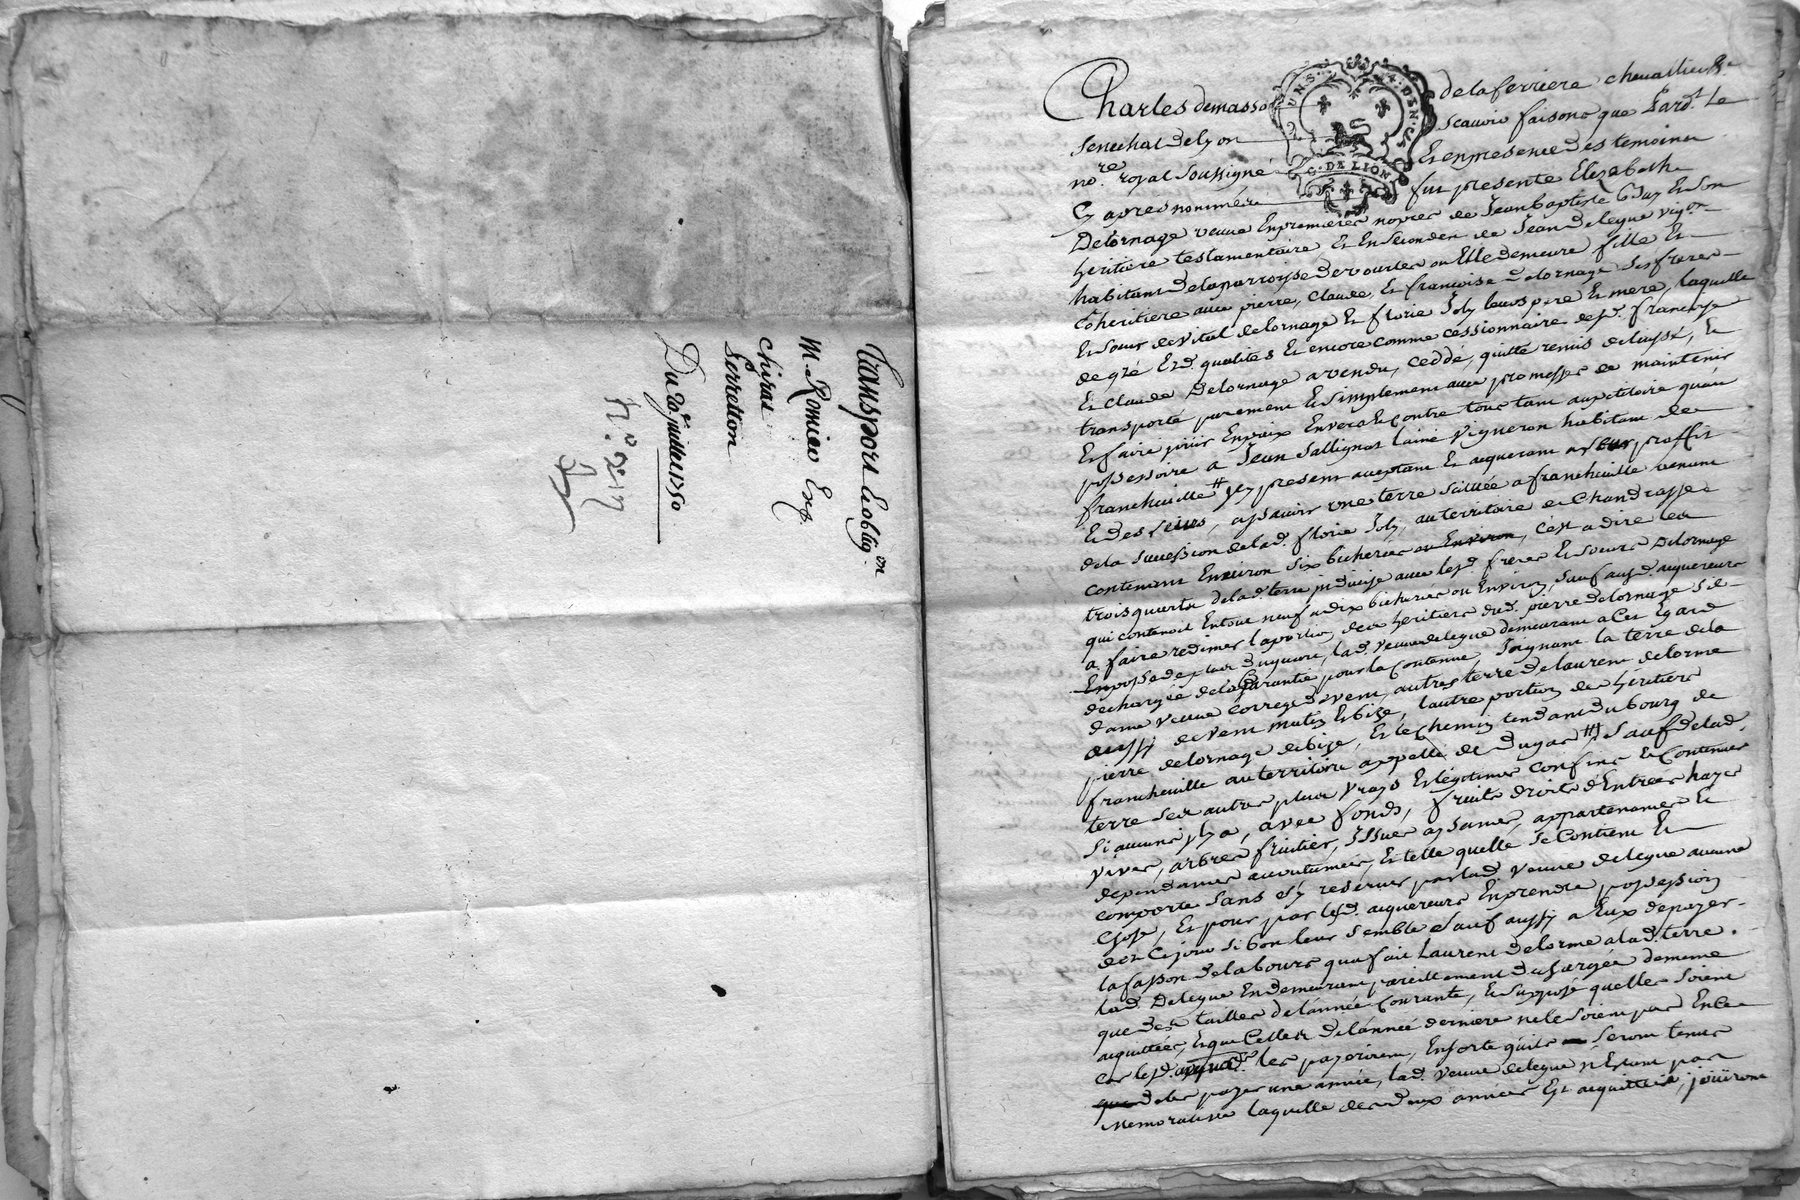 Transport & oblig.on
M. Romieu Exp.
Chirat
Serreton
Du 20e Juillet 1750
N.o 217
UN.S. DEN.rs
G. DE LION
Charles demasso de la ferriere chevallier &
Senechal de Lyon scavoir faisons que Pard.t le
no.re royal soussigné Et en presence des temoins
Cy apres nommés fut presente Elizabeth
Delornage veuve En premieres nopces de Jean baptiste Guy Et son
heritiere testamentaire Et En secondes de Jean delegue vig.on
habitant de la parroisse de vourles ou Elle demeure fille Et
Coheritiere avec pierre, Claude, Et francoise delornage Ses freres
Et soeur de vital delornage Et florie Joly leurs pere Et mere, laquelle
de gré Esd. qualites Et encore comme cessionnaire desd. francoise
Et Claude Delornage a vendu, ceddé, quitté remis delaissé, Et
transporté purement Et simplement avec promesse de maintenir
Et faire jouir En paix Envers Et Contre tous tant au petitoire qu'au
possessoire a Jean Sallignat laine vigneron habitant de
francheville # icy present acceptant Et acquerant a leur proffit
Et des leurs, assavoir une terre scittuée a francheville venant
de la succession de lad. florie Joly, au territoire de Chandrasse
contenant Environ six bicherées ou Environ, C'est a dire les
trois quarts de lad. terre indivise avec lesd. freres Et soeurs Delornage
qui contenoit En tout neuf a dix bicherées ou Environ, sauf ausd. acquereurs
a faire redimer la portion des heritiers dud. pierre delornage si
lad. veuve delegue demeurant a Cet Egard
dechargée de la garantie pour la Contenue, Joignant la terre de la
dame veuve Corrège de vent, autres terre de laurent delorme
aussy de vent matin Et bize, l'autre portion des heritiers
pierre delornage de bize, Et le Chemin tendant du bourg de
francheville au territoire appellé de Dugas # Sauf de lad.
terre ses autres plus vrays Et légitimes Confins Et Contenues
Si aucuns y a, avec fonds, fruits droits d'Entrées hayes
vives, arbres fruitiers, Issues aysances, appartenances Et
dependances accoutumées, Et telle quelle se Contient Et
comporte Sans s'y reserver par lad. veuve delegue aucune
Chose, Et pour par lesd. acquereurs En prendre possession
dez Ce jour si bon leur semble Sauf aussy a Eux de payer
la fasson de labours qua fait Laurent delorme a lad. terre
lad. Delegue En demeurant pareillement dechargée de meme
que des tailles de l'année Courante, Et supposé quelles soient
acquittées, Et que Celles de l'année derniere ne le soient pas En Ce
Cas lesd. acque.rs les payeroient, En sorte qu'ils seront tenus
de les payer une année, lad. veuve delegue n'Etant pas
Memorative laquelle des deux années Est acquittée, jouiront